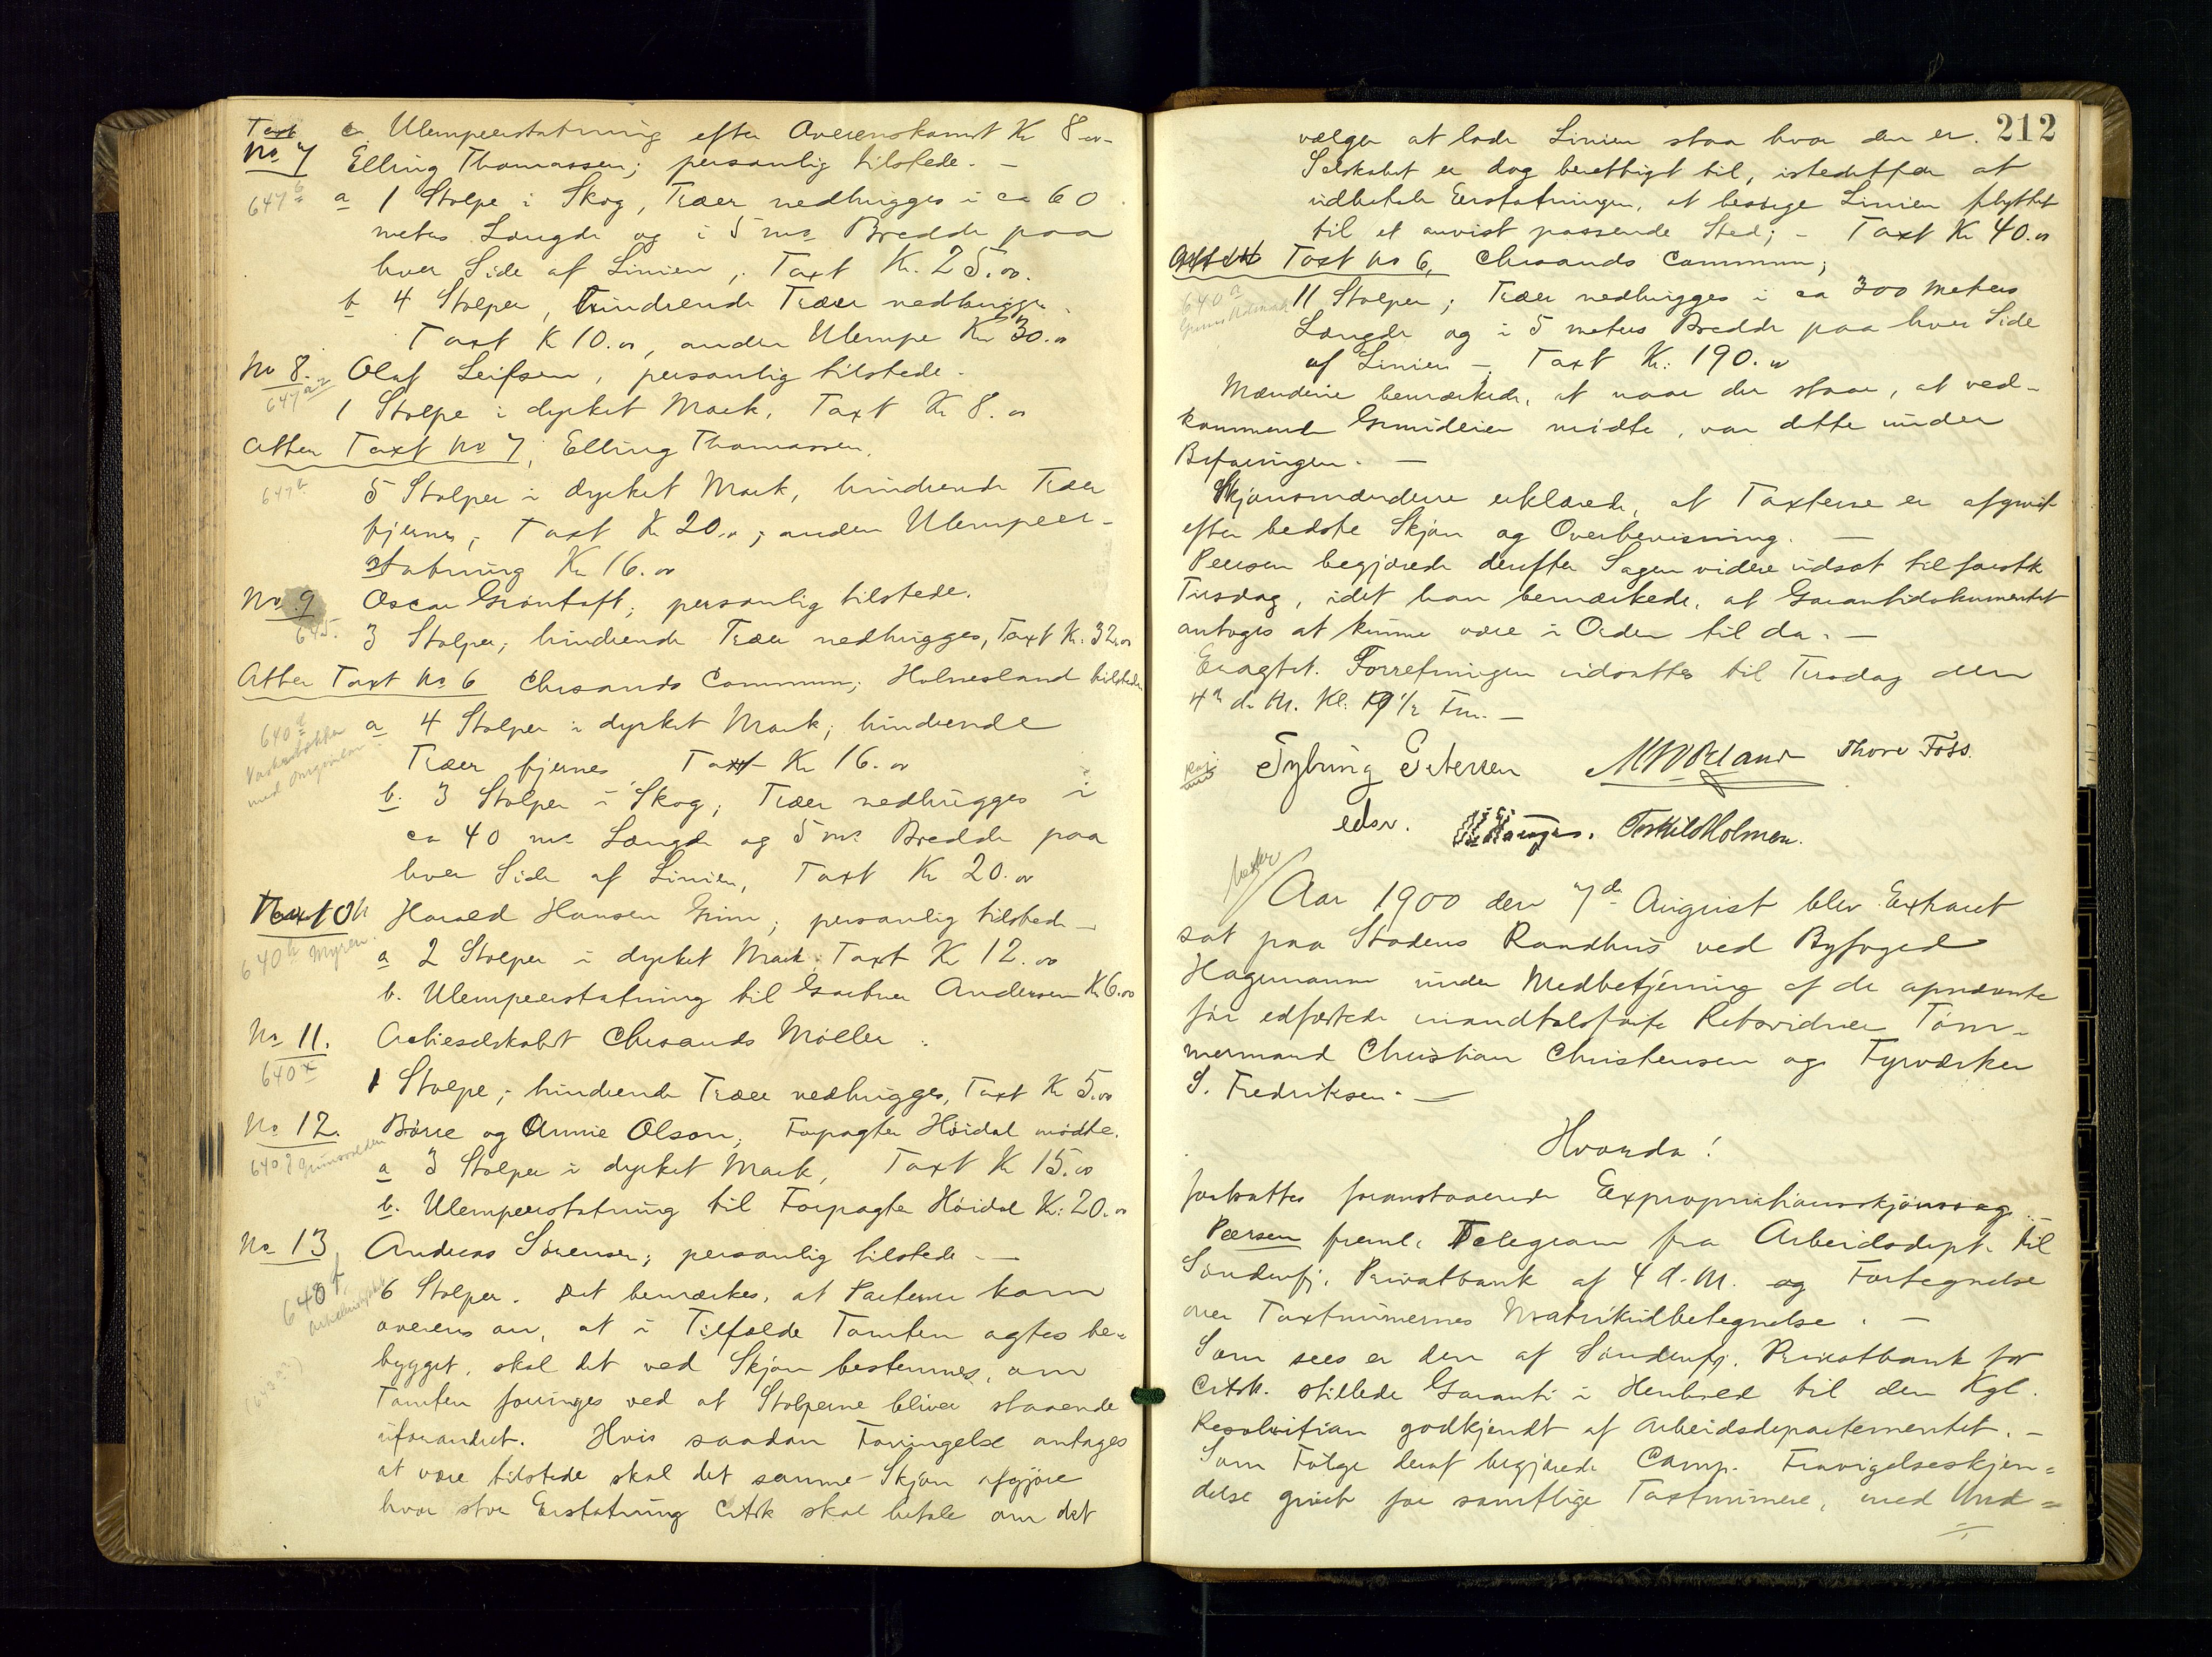 Taxt c. Ulempeerstatning efter Overenskomst Kr 8.00-
No 7 Elling Thomassen; personlig tilstede. -
647b a 1 Stolpe i Skog, Træer nedhugges i ca 60
meters Længde og i 5 mrs Bredde paa
hver Side af Linien, Taxt Kr. 25.00.
b 4 Stolper, hindrende Træer nedhugges.
Taxt K 10.00, anden Ulempe Kr 30.00
No 8. Oluf Leifsen, personlig tilstede -
647
1 Stolpe i dyrket Mark, Taxt Kr 8.00
Atter Taxt No 7, Elling Thomassen.
647b 5 Stolper i dyrket Mark, hindrende Træer
fjernes, Taxt Kr 20.00; anden Ulempeer-
statning Kr 16.00
No 9 Oscar Grøntoft; personlig tilstede.
645. 3 Stolper; hindrende Træer nedhugges, Taxt Kr. 32.00
Atter Taxt No 6 Chrsands Commun; Holmesland tilstede
640d a 4 Stolper i dyrket Mark; hindrende
Træer fjernes Taxt Kr 16.00
b. 3 Stolper i Skog; Træer nedhugges i
ca 40 mrs Længde og 5 mrs Bredde paa
hver Side af Linien, Taxt Kr 20.00
Taxt 10 Harald Hansen Grim; personlig tilstede -
640h Myren. a 2 Stolper i dyrket Mark; Taxt Kr 12.00
b. Ulempeerstatning til Gartner Andersen K 6.00
No 11. Actieselskabet Chrsands Møller.
640x
1 Stolpe; hindrende Træer nedhugges, Taxt Kr 5.00
No 12. Børre og Annie Olson; Forpagter Høidal mødte.
640g a 3 Stolper i dyrket Mark, Taxt Kr 15.00
b. Ulempeerstatning til Forpagter Høidal K: 20.00
No 13 Andreas Sørensen; personlig tilstede - —
640f 6 Stolper. Det bemærkes, at Parterne kom
overens om, at i Tilfælde Tomten agtes be-
bygget, skal det ved Skjøn bestemmes, om
Tomten forringes ved at Stolperne bliver staaende
uforandret. Hvis saadan Forringelse antages
at være tilstede skal det samme Skjøn afgjøre
hvor stor Erstatning Crtsk skal betale om det
212
vælger at lade Linien staa hvor den er.
Selskabet er dog berettiget til, istedetfor at
udbetale Erstatningen, at besørge Linien flyttet
til et anvist passende Sted; - Taxt Kr 40.00
Atter Taxt No 6, Chrsands Commun;
640a 11 Stolper; Træer nedhugges i ca 300 Meters
Længde og i 5 meters Bredde paa hver Side
af Linien - Taxt Kr. 190.00
Mændene bemærkede, at naar der staar, at ved-
kommende Grundeier mødte, var dette under
Befaringen. —
Skjønsmændene erklærede, at Taxterne er afgivet
efter bedste Skjøn og Overbevisning. —
Peersen begjærede derefter Sagen videre udsat til førstk
Tirsdag, idet han bemærkede, at Garantidokumentet
antoges at kunne være i Orden til da. —
Eragtet. Forretningen udsattes til Tirsdag den
d. M. Kl. 9 1/2 Fm. —
Tybring Petersen Thore Foss.
edsv. Terkild Holmen.
Aar 1900 den 7de August blev Extraret
sat paa Stadens Raadhus ved Byfoged
Hagemann under Medbetjening af de opnævnte
før edfæstede mandtalsførte Retsvidner Tøm-
mermand Christian Christensen og Fyrværker
S. Fredriksen. —
Hvorda!
fortsattes foranstaaende Expropriationsskjønssag. -
Peersen freml. Telegram fra Arbeidsdept. til
Søndenfj. Privatbank af 4 d. M. og Fortegnelse
over Taxtnumernes Matrikulbetegnelse. —
Som sees er den af Søndenfj. Privatbank for
Crtsk. stillede Garanti i Henhold til den Kgl.
Resolution godkjendt af Arbeidsdepartementet. -
Som Følge deraf begjærede Comp. Fravigelseskjen=
delse givet for samtlige Taxtnumere, med Und=